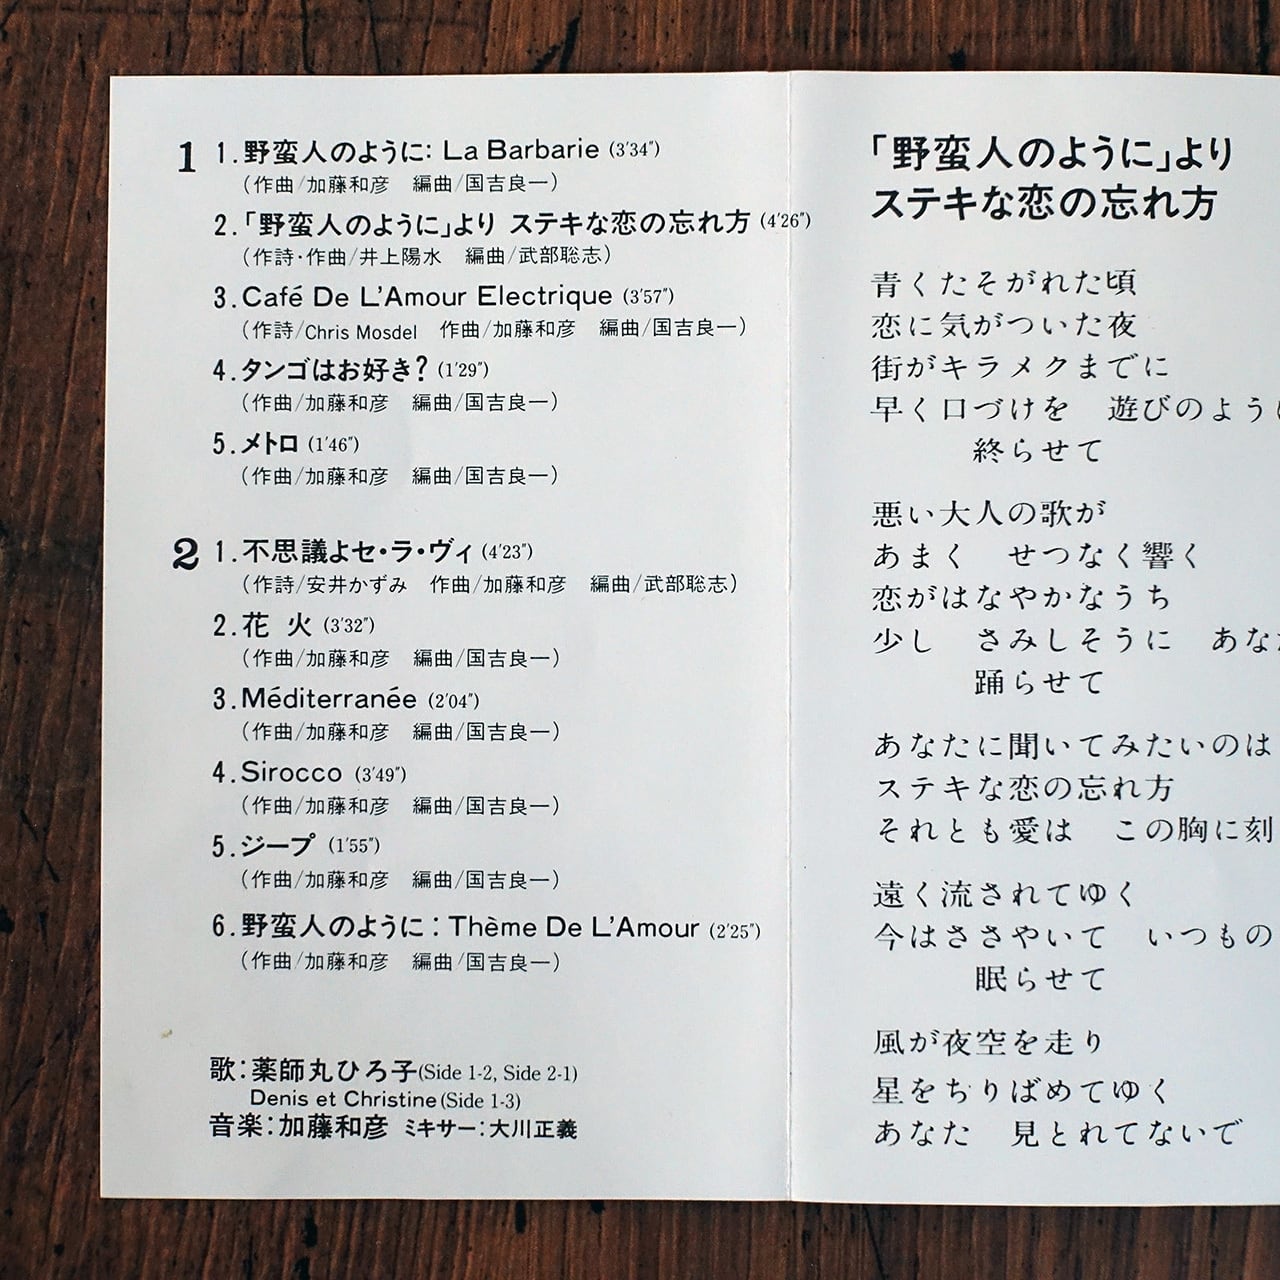 1 1.野蛮人のように: La Barbarie (3'34")
(作曲/加藤和彦 編曲/国吉良一)
2.「野蛮人のように」より ステキな恋の忘れ方 (4'26")
(作詩・作曲/井上陽水 編曲/武部聡志)
3.Café De L'Amour Electrique (3'57")
(作詩/Chris Mosdel 作曲/加藤和彦 編曲/国吉良一)
4.タンゴはお好き? (1'29")
(作曲/加藤和彦 編曲/国吉良一)
5.メトロ (1'46")
(作曲/加藤和彦 編曲/国吉良一)
2 1.不思議よセ・ラ・ヴィ (4'23")
(作詩/安井かずみ 作曲/加藤和彦 編曲/武部聡志)
2.花 火 (3'32")
(作曲/加藤和彦 編曲/国吉良一)
3.Méditerranée (2'04")
(作曲/加藤和彦 編曲/国吉良一)
4.Sirocco (3'49")
(作曲/加藤和彦 編曲/国吉良一)
5.ジープ (1'55")
(作曲/加藤和彦 編曲/国吉良一)
6.野蛮人のように: Thème De L'Amour (2'25")
(作曲/加藤和彦 編曲/国吉良一)
歌:薬師丸ひろ子(Side 1-2, Side 2-1)
Denis et Christine(Side 1-3)
音楽:加藤和彦 ミキサー:大川正義
「野蛮人のように」より
ステキな恋の忘れ方
青くたそがれた頃
恋に気がついた夜
街がキラメクまでに
早く口づけを 遊びのよう
終らせて
悪い大人の歌が
あまく せつなく響く
恋がはなやかなうち
少し さみしそうに あな
踊らせて
あなたに聞いてみたいのは
ステキな恋の忘れ方
それとも愛は この胸に刻
遠く流されてゆく
今はささやいて いつもの
眠らせて
風が夜空を走り
星をちりばめてゆく
あなた 見とれてないで